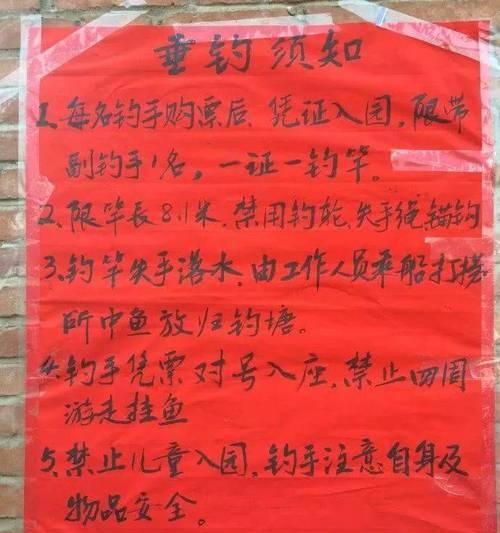 垂钓须知
1、每名钓手购票后、凭证入园，限带
副钓手1名，一证一钓竿。
2、限竿长8.1米，禁用钓轮、失手绳、锚钩
3、钓竿失手落水，由工作人员乘船打捞
所中鱼放归钓塘。
4、钓手凭票对号入座，禁止四周
游走挂鱼
5、禁止儿童入园，钓手注意自身及
物品安全。